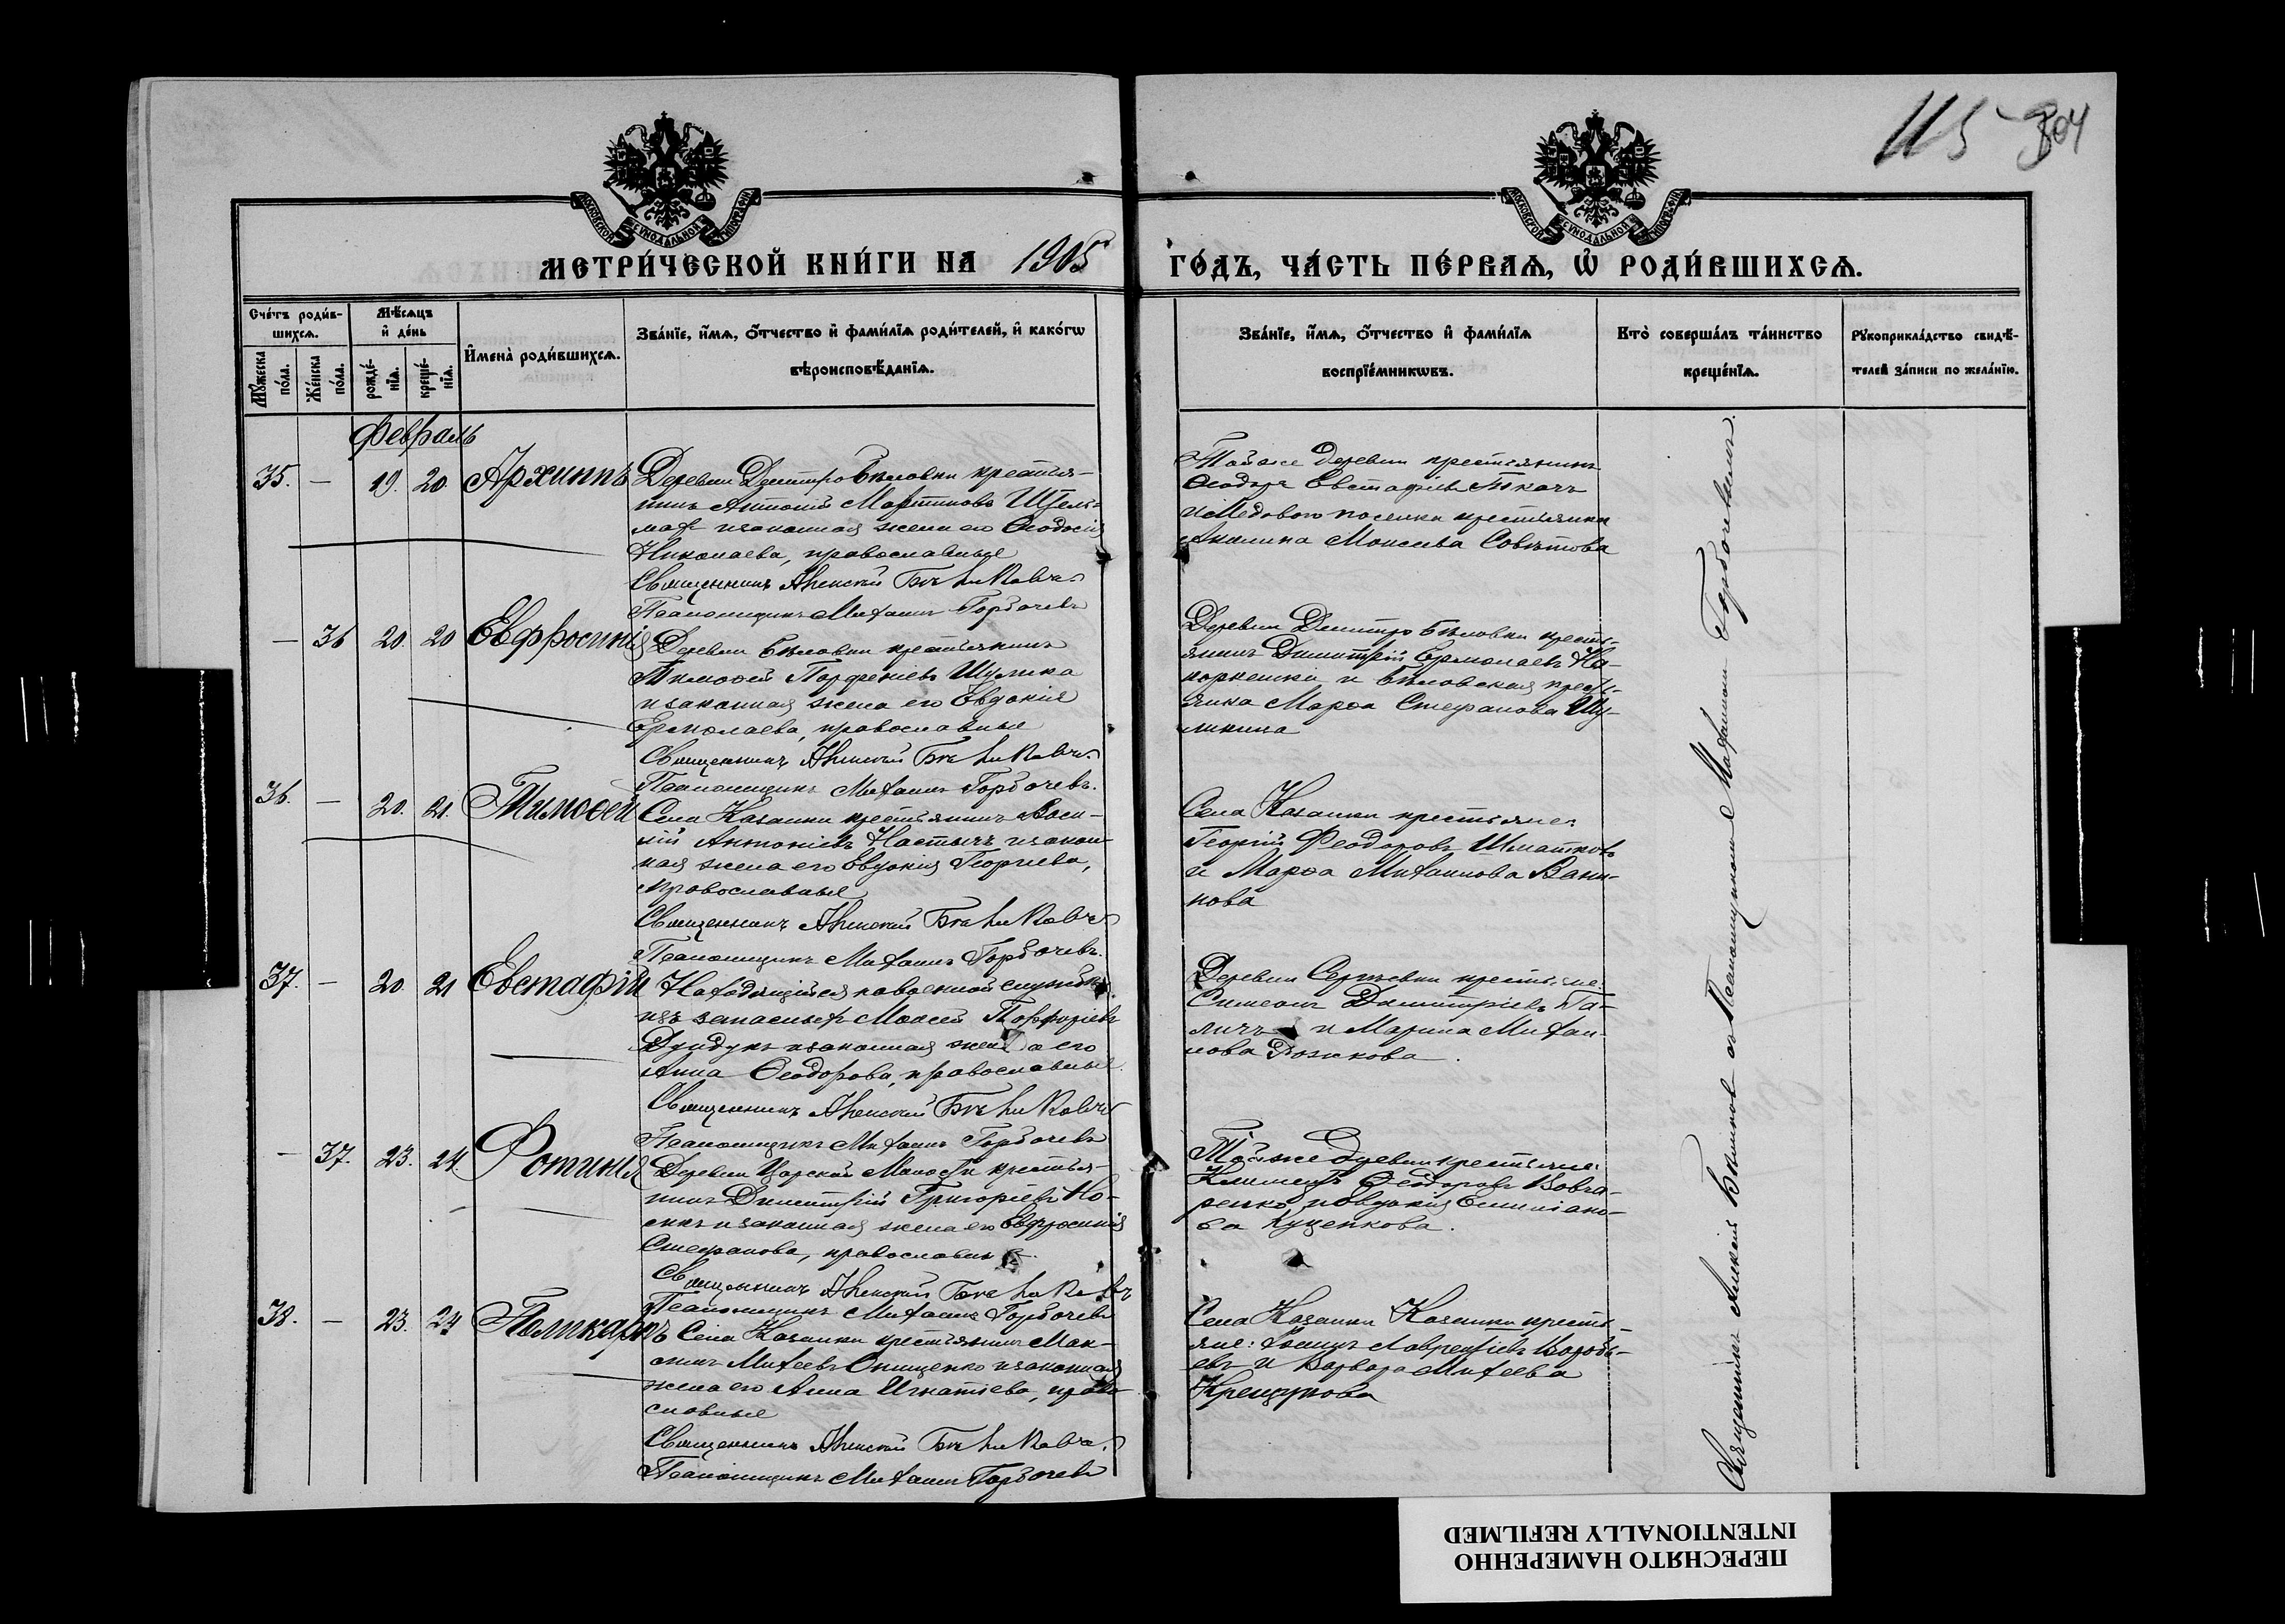 115 304
МОСКОВСКОЙ СѴНОДАЛЬНОЙ ТИПОГРАФІИ
МОСКОВСКОЙ СѴНОДАЛЬНОЙ ТИПОГРАФІИ
МЕТРИ́ЧЕСКОЙ КНИ́ГИ НА 1905 ГО́ДЪ, ЧА́СТЬ ПЕ́РВАѦ, Ѡ҆ РОДИ́ВШИХСѦ.
Сче́тъ роди́в-
шихсѧ.
Мꙋ́жеска
по́ла.
Же́нска
по́ла.
Мѣ́сѧцъ
и҆ де́нь
рожде́-
нїѧ.
креще́-
нїѧ.
И҆мена̀ роди́вшихсѧ.
Зва́нїе, и҆́мѧ, ѻ҆́тчество и҆ фами́лїѧ роди́телей, и҆ како́гѡ
вѣроисповѣ́данїѧ.
Зва́нїе, и҆́мѧ, ѻ҆́тчество и҆ фами́лїѧ
воспрїе́мникѡвъ.
Кто̀ соверша́лъ та́инство
креще́нїѧ.
Рꙋкоприкла́дство свидѣ́-
телей за́писи по жела́нїю.
Февраль
35. — 19. 20. Архиппъ
Деревни Дмитро Бѣловки крестья-
нинъ Антоній Мартиновъ
и законная жена его Ѳеодосія
Николаева, православные
Священникъ Алексій
Псаломщикъ Михаилъ Горбачевъ
Тойже деревни крестьянинъ
Ѳеодоръ Евстафіевъ Ткачъ
и Медоваго поселка крестьянка
Акилина Моисеева Совѣтова
— 36 20. 20 Евфросинія
Деревни Бѣловки крестьянинъ
Тимоѳей Парфеніевъ Шулика
и законная жена его Евдокія
Ермолаева, православные
Священникъ Алексій
Псаломщикъ Михаилъ Горбачевъ.
Деревни Дмитро Бѣловки кресть-
янинъ Димитрій Ермолаевъ На-
и Бѣловская крест-
янка Марѳа Стефанова Шу-
ликина
36. — 20. 21. Тимоѳей
Села Казанки крестьянинъ Васи-
лій Антоніевъ и закон-
ная жена его Евдокія Георгіева,
православные
Священникъ Алексій
Псаломщикъ Михаилъ Горбачевъ.
Села Казанки крестьяне:
Георгій Феодоровъ Шматковъ
и Марѳа Михаилова Вани-
кова
37. — 20. 21 Евстафій
Находящійся на военной службѣ
изъ запасныхъ Моисей Порфиріевъ
Дундукъ и законная жена его
Анна Ѳеодорова, православные.
Священникъ Алексій
Псаломщикъ Михаилъ Горбачевъ
Деревни Сергѣевки крестьяне:
Симеонъ Димитріевъ Га-
личъ и Марина Михаи-
лова
— 37. 23. 24. Фотинія
Деревни Царской Милости крестья-
нинъ Димитрій Григоріевъ Но-
сикъ и законная жена его Евфросинія
Стефанова, православные.
Священникъ Алексій
Псаломщикъ Михаилъ Горбачевъ
Тойже деревни крестьяне:
Климентъ Ѳеодоровъ Вовча-
ренко и Евдокія Емиліано-
ва Куценкова.
38. — 23. 24 Поликарпъ
Села Казанки крестьянинъ Мак-
симъ Михеевъ Онищенко и законная
жена его Анна Игнатіева, право-
славные
Священникъ Алексій
Псаломщикъ Михаилъ Горбачевъ
Села Казанки Казанки кресть-
яне: Іоаннъ Лаврентіевъ Воробь-
евъ и Варвара Михеева
Крецунова
Священникъ Алексій съ Псаломщикомъ Михаиломъ Горбачевымъ.
ПЕРЕСНЯТО НАМЕРЕННО
INTENTIONALLY REFILMED